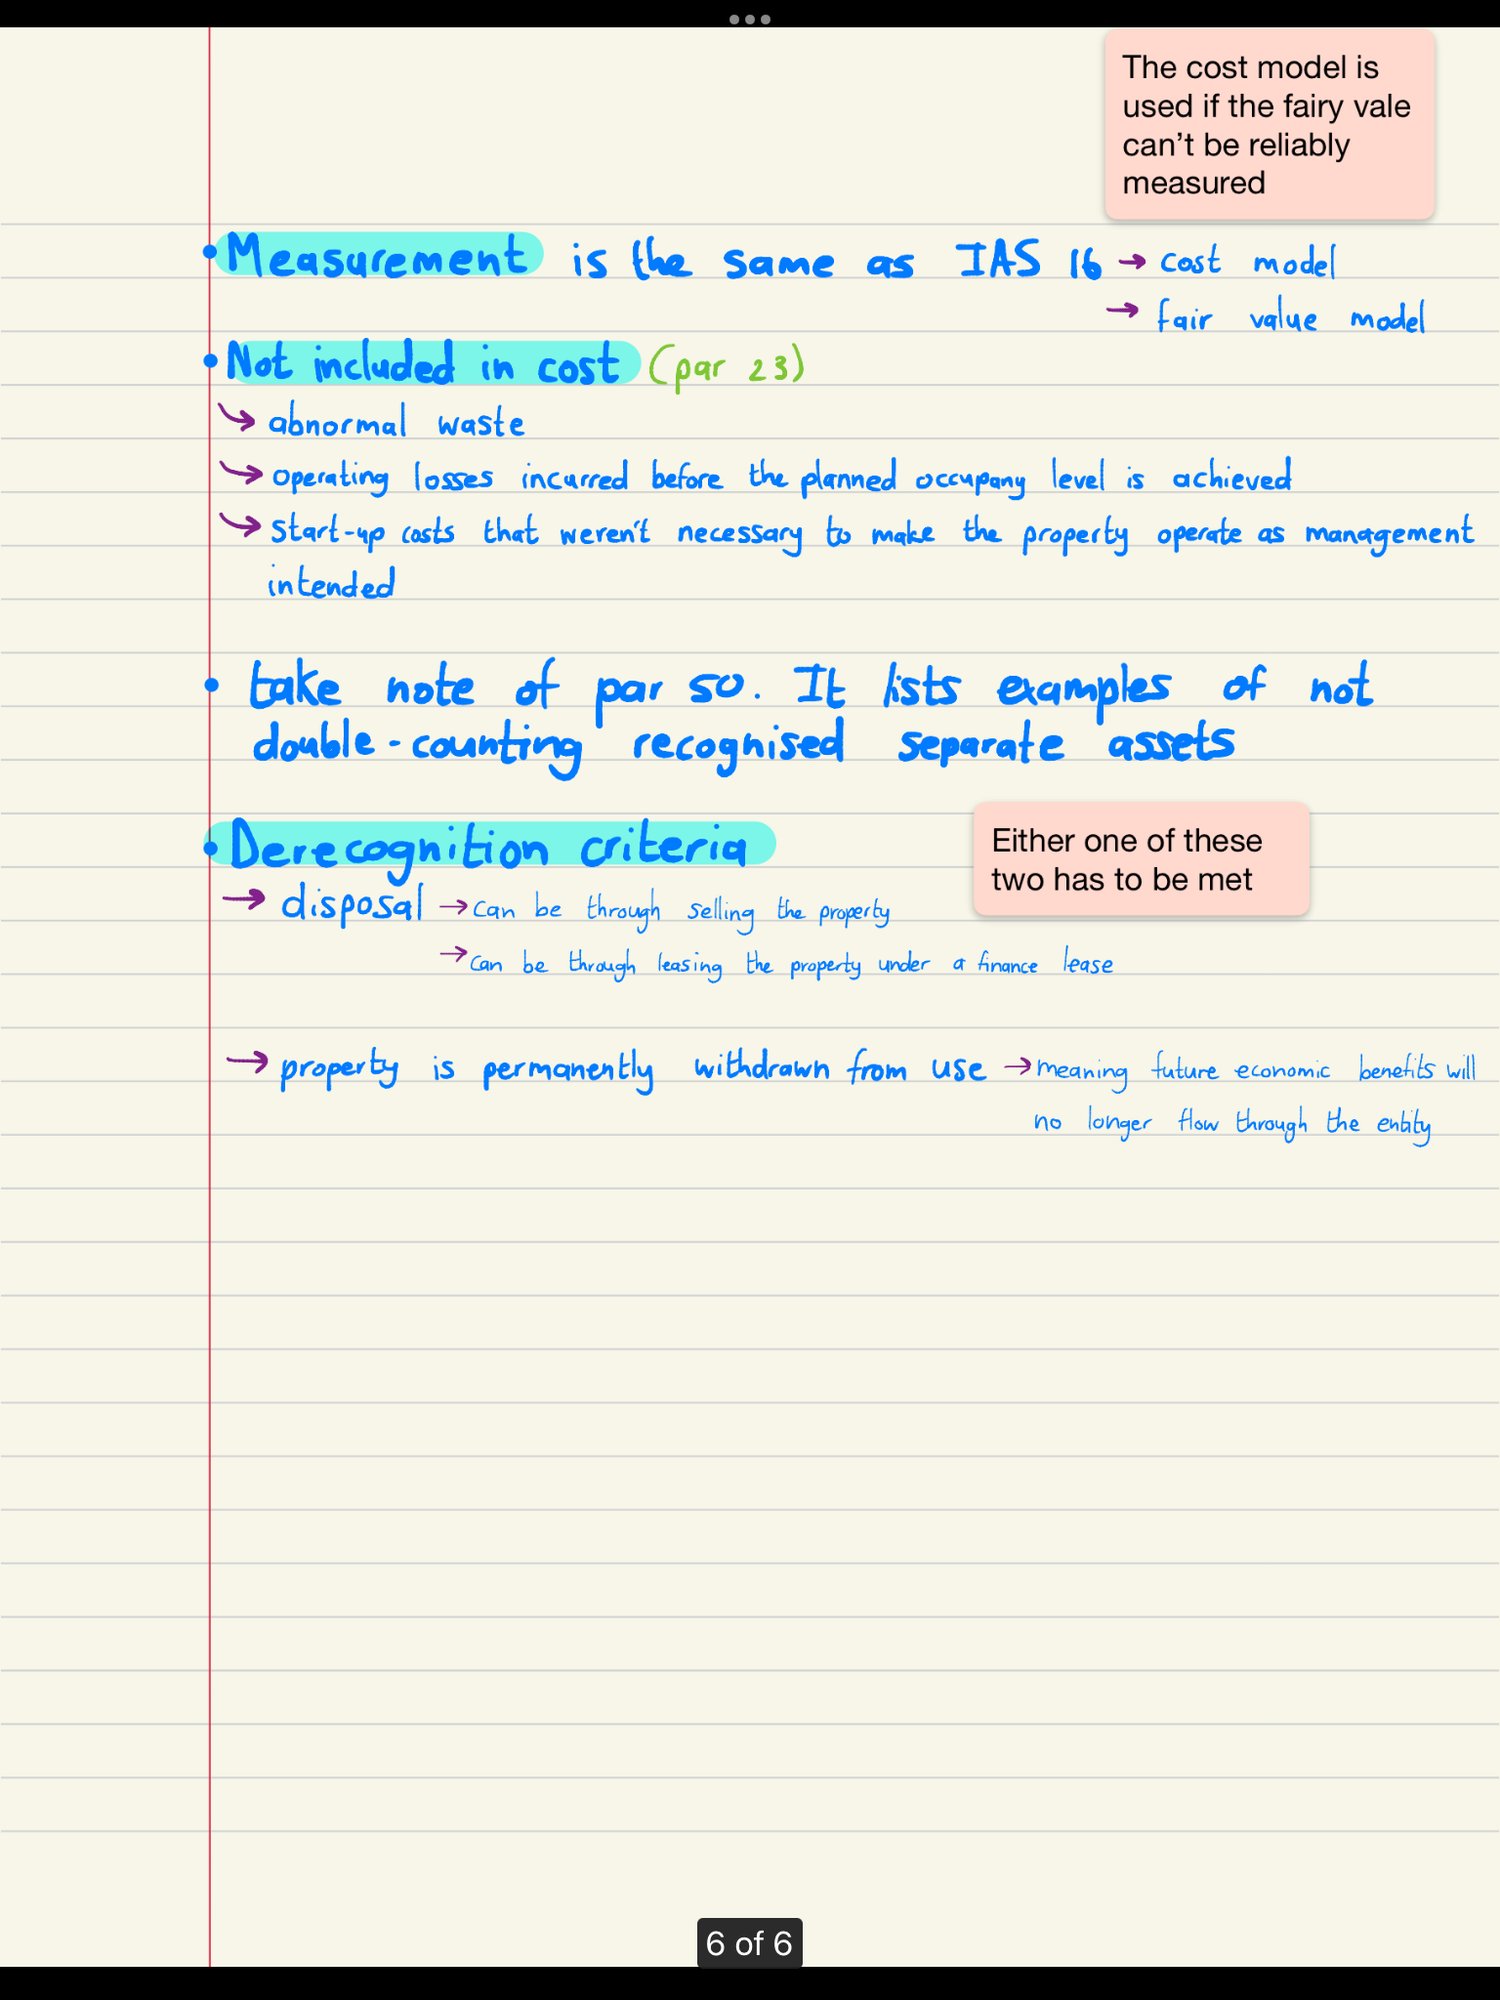 The cost model is
used if the fairy vale
can't be reliably
measured
• Measurement is the same as IAS 16 → cost model
→ fair value model
• Not included in cost (par 23)
→ abnormal waste
→ operating losses incurred before the planned occupany level is achieved
→ Start-up costs that weren't necessary to make the property operate as management
intended
• take note of par 50. It lists examples of not
double-counting recognised separate assets
Either one of these
two has to be met
• Derecognition criteria
→ disposal → Can be through selling the property
→ Can be through leasing the property under a finance lease
→ property is permanently withdrawn from use → meaning future economic benefits will
no longer flow through the entity
6 of 6